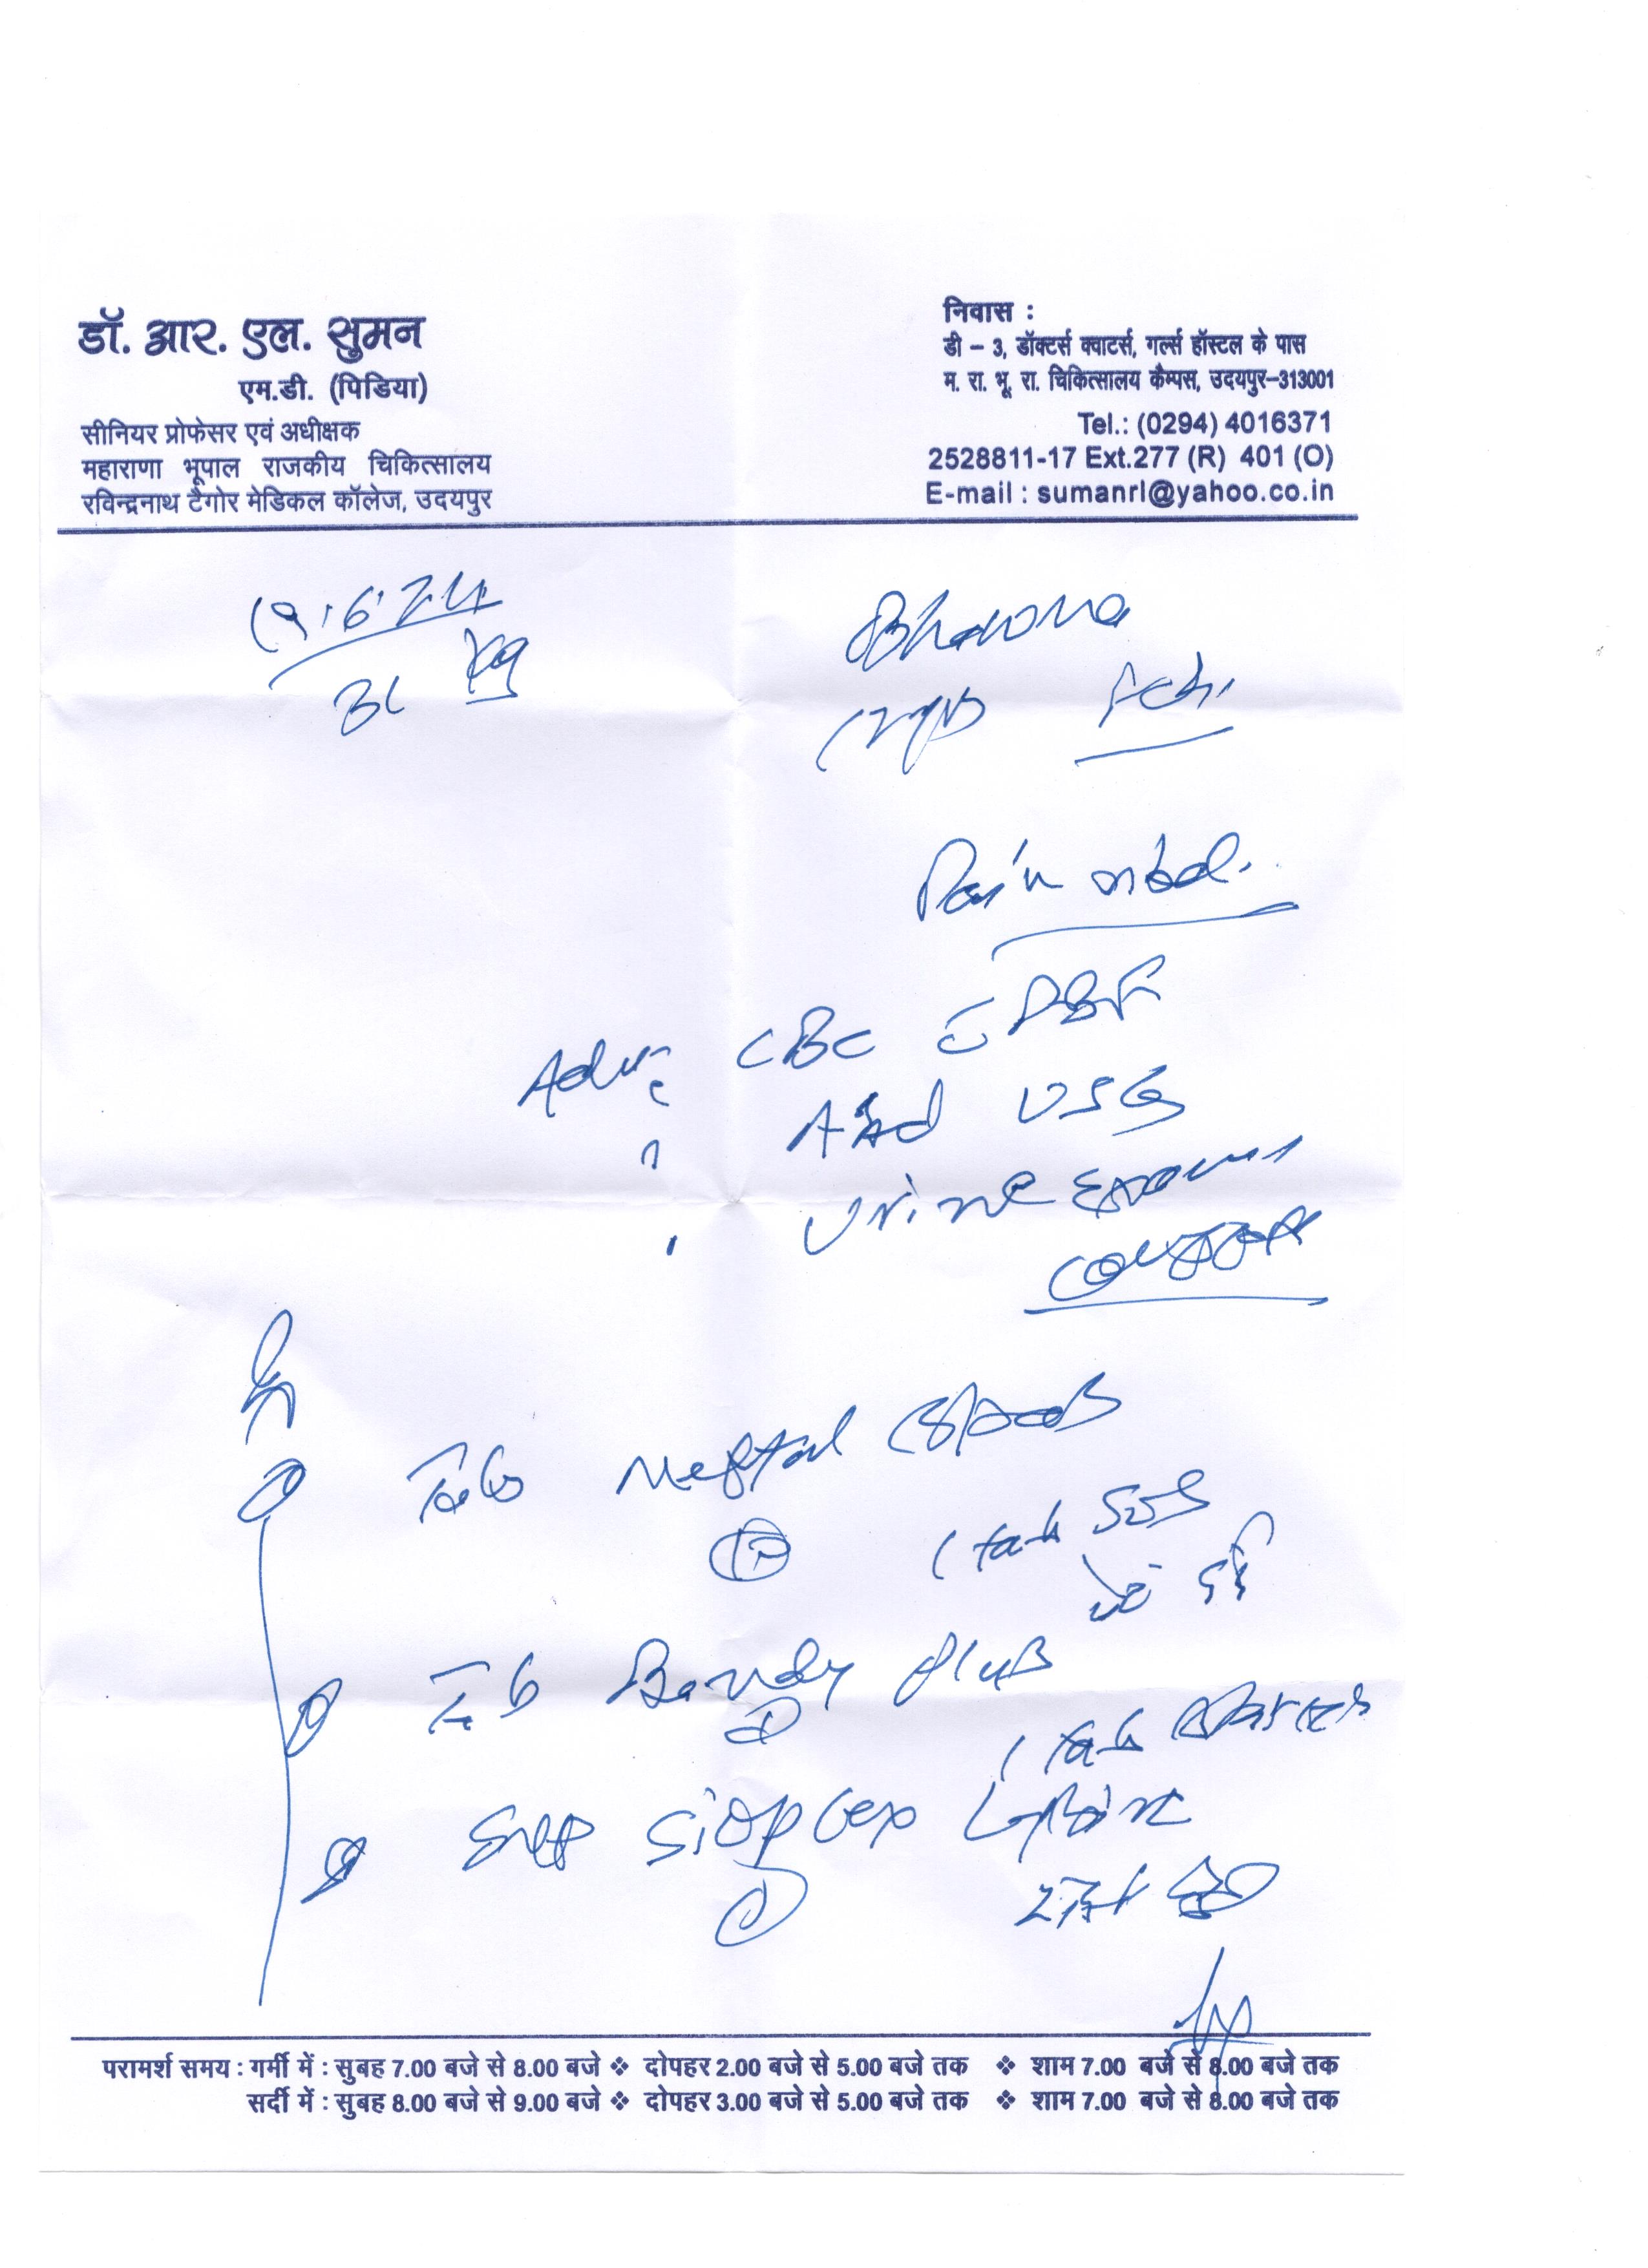 डॉ. आर. एल. सुमन
एम.डी. (पिडिया)
सीनियर प्रोफेसर एवं अधीक्षक
महाराणा भूपाल राजकीय चिकित्सालय
रविन्द्रनाथ टैगोर मेडिकल कॉलेज, उदयपुर
निवास :
डी – 3, डॉक्टर्स क्वाटर्स, गर्ल्स हॉस्टल के पास
म. रा. भू. रा. चिकित्सालय कैम्पस, उदयपुर–313001
Tel.: (0294) 4016371
2528811-17 Ext.277 (R) 401 (O)
E-mail : sumanrl@yahoo.co.in
19.6.24
kg
Bhawna
Pain abd.
CBC PBF
Abd USG
Urine Exam
Tab Meftal Spas
1 tab SOS
Tab Bandy Plus
1 tab
Syp
परामर्श समय : गर्मी में : सुबह 7.00 बजे से 8.00 बजे ❖ दोपहर 2.00 बजे से 5.00 बजे तक ❖ शाम 7.00 बजे से 8.00 बजे तक
सर्दी में : सुबह 8.00 बजे से 9.00 बजे ❖ दोपहर 3.00 बजे से 5.00 बजे तक ❖ शाम 7.00 बजे से 8.00 बजे तक